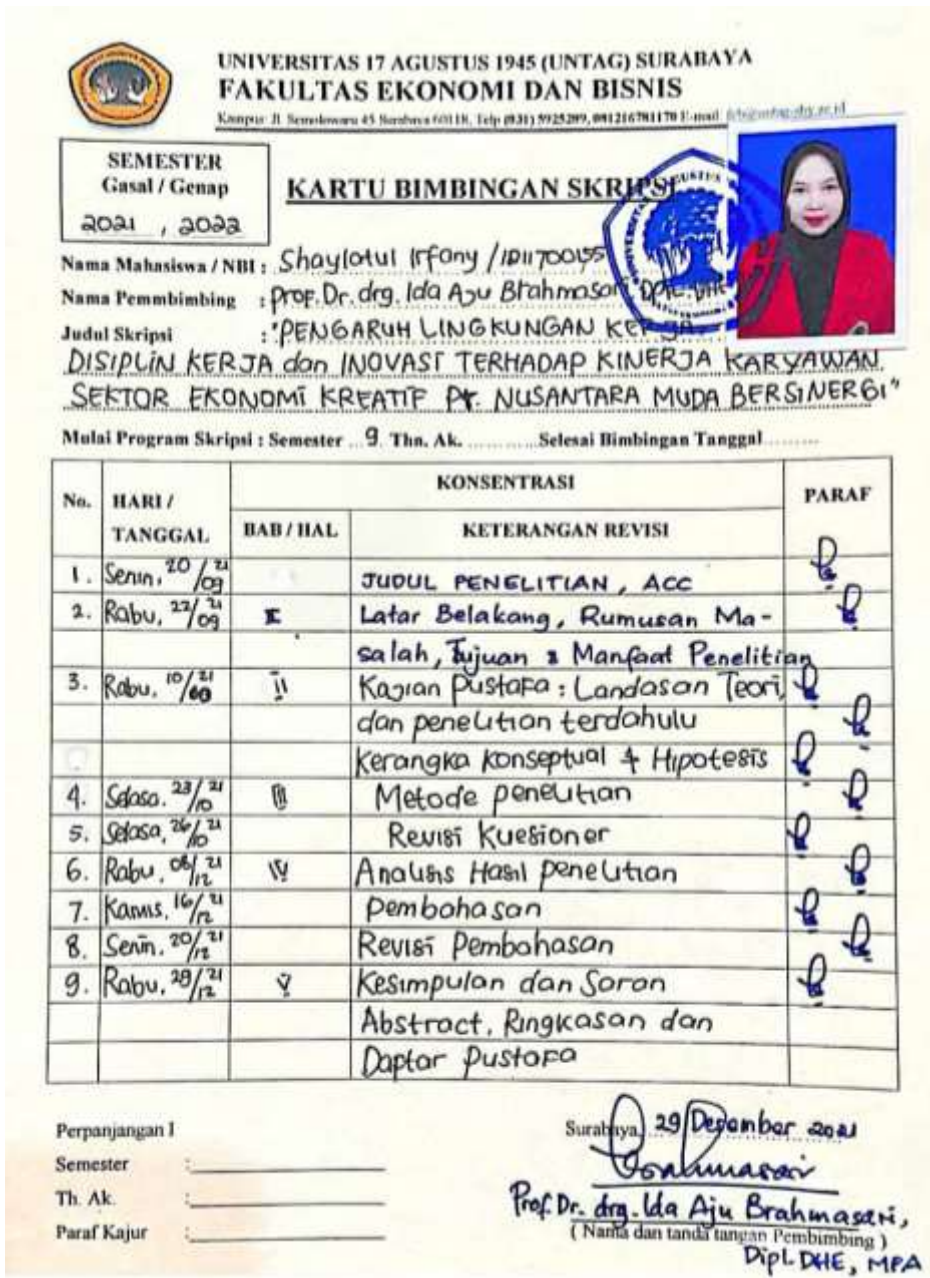 UNIVERSITAS 17 AGUSTUS 1945 (UNTAG) SURABAYA
FAKULTAS EKONOMI DAN BISNIS
Kampus: Jl. Semolowaru 45 Surabaya 60118, Telp (031) 5925289, 081216781170 E-mail:
SEMESTER
Gasal / Genap
2021 , 2022
KARTU BIMBINGAN SKRIPSI
Nama Mahasiswa / NBI : Shaylatul Irfany / 1211700155
Nama Pemmbimbing : Prof. Dr. drg. Ida Aju Brahmasari, Dipl. DHE
Judul Skripsi : "PENGARUH LINGKUNGAN KERJA,
DISIPLIN KERJA dan INOVASI TERHADAP KINERJA KARYAWAN
SEKTOR EKONOMI KREATIF PT. NUSANTARA MUDA BERSINERGI"
Mulai Program Skripsi : Semester ...9. Thn. Ak. ............Selesai Bimbingan Tanggal.........
No. HARI / TANGGAL KONSENTRASI PARAF
BAB / HAL KETERANGAN REVISI
1. Senin, 20/09 21 JUDUL PENELITIAN, ACC
2. Rabu, 22/09 21 I Latar Belakang, Rumusan Ma-
salah, Tujuan & Manfaat Penelitian
3. Rabu, 10/ 21 II Kajian Pustaka : Landasan Teori,
dan penelitian terdahulu
Kerangka Konseptual & Hipotesis
4. Selasa, 23/10 21 III Metode penelitian
5. Selasa, 26/10 21 Revisi Kuesioner
6. Rabu, 08/12 21 IV Analisis Hasil penelitian
7. Kamis, 16/12 21 Pembahasan
8. Senin, 20/12 21 Revisi Pembahasan
9. Rabu, 29/12 21 V Kesimpulan dan Saran
Abstract, Ringkasan dan
Daptar Pustaka
Perpanjangan I
Semester :
Th. Ak. :
Paraf Kajur :
Surabaya, 29 Desember 2021
Brahmasari
Prof. Dr. drg. Ida Aju Brahmasari,
( Nama dan tanda tangan Pembimbing )
Dipl. DHE, MPA